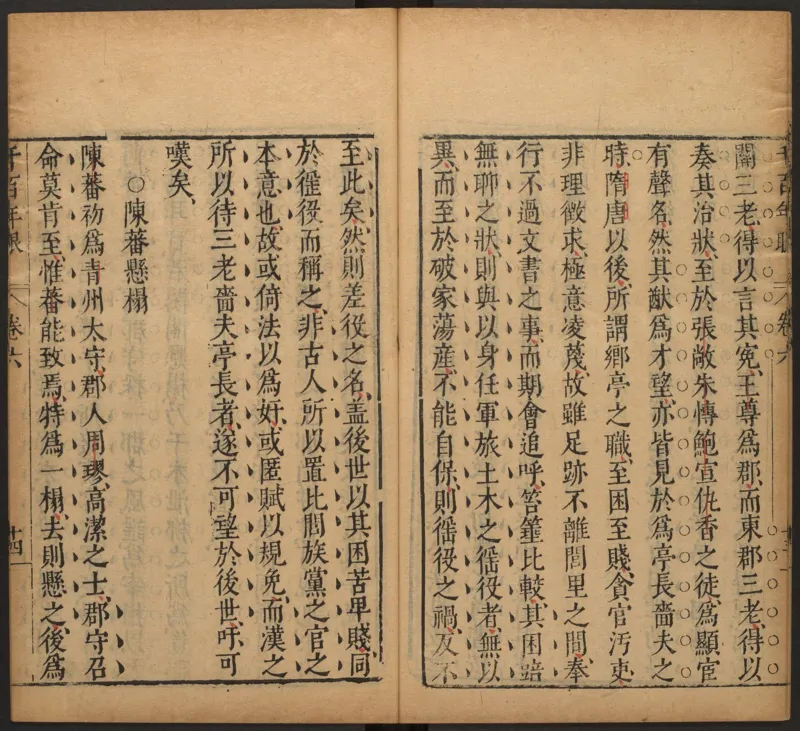 關三老得以言其冤王尊為郡而東郡三老得以
奏其治狀至於張敞朱愽鮑宣仇香之徒為顯宦
有聲名然其猷為才望亦皆見於為亭長嗇夫之
時隋唐以後所謂鄉亭之職至困至賤貪官汚吏
非理徵求極意凌蔑故雖足跡不離閭里之間奉
行不過文書之事而期會追呼笞箠比較其困踣
無聊之狀則與以身任軍旅土木之徭役者無以
異而至於破家蕩産不能自保則徭役之禍及不
至此矣然則差役之名盖後世以其困苦卑賤同
於徭役而稱之非古人所以置比閭族黨之官之
本意也故或倚法以為奸或匿賦以規免而漢之
所以待三老嗇夫亭長者遂不可望於後世吁可
嘆矣
○陳蕃懸榻
陳蕃初為青州太守郡人周璆高潔之士郡守召
命莫肯至惟蕃能致焉特為一榻去則懸之後為
千百年眼 卷六 十四